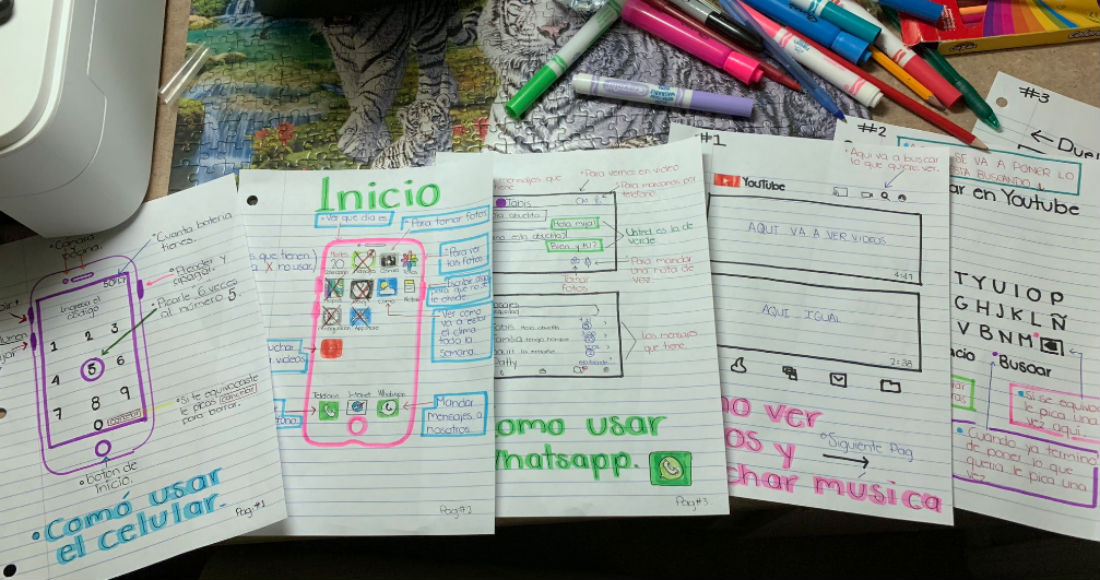 Cuanta bateria
tienes.
50%
Prender y
apagar.
Picarle 6 veces
al número 5.
Ingresa el
código
1 2 3
4 5 6
7 8 9
0 cancelar
Si te equivocaste
le picas cancelar
para borrar.
botón de
Inicio.
Comó usar
el celular.
Pag:#1
Inicio
Ver que dia es
Para tomar fotos
Para ver
las fotos.
s que tienen
a X no usar)
Martes
20
Ver como
va a estar
el clima
toda la
semana.
Teléfono Internet Whatsapp
Mandar
mensajes a
nosotros
Pag#2
mensajes que
tiene
Para vernos en video
Para marcarnos por
teléfono.
Tabis
Hola mija!
Bien y tú?
Usted es la de
verde
Para mandar
una nota de
voz.
Tomar
fotos
los mensajes
que tiene.
omo usar
hatsapp.
Pag#3.
#1
Aqui va a buscar
lo que quiere ver.
YouTube
AQUI VA A VER VIDEOS
4:41
AQUI IGUAL
2:38
o ver
os y
char música
Siguiente Pag
#2
SE VA A PONER LO
STA BUSCANDO
ar en Youtube
#3
T Y U I O P
G H J K L Ñ
V B N M
acio
Buscar
Si se equivoc
le pica una
vez aqui.
Cuando ya termino
de poner lo que
queria le pica una
vez